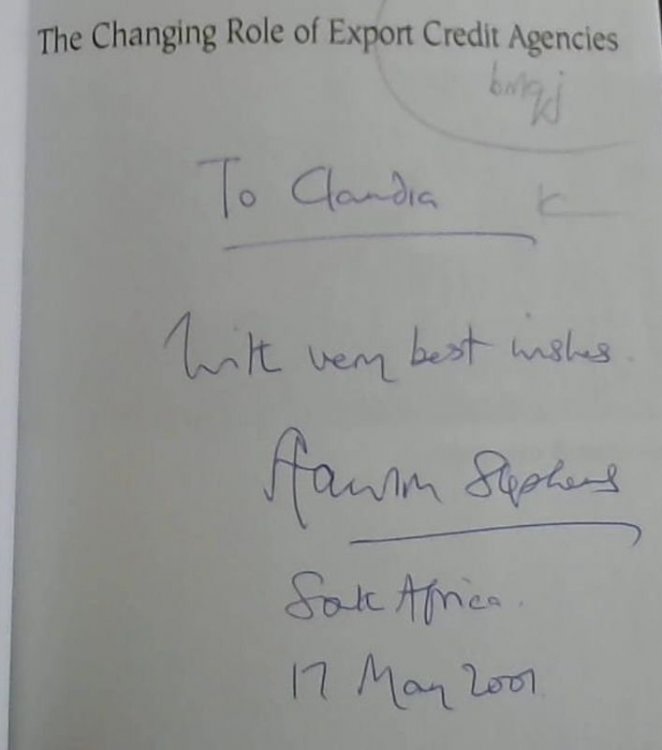 The Changing Role of Export Credit Agencies
bmqj
To Claudia
With very best wishes.
Stephens
South Africa.
17 May 2001